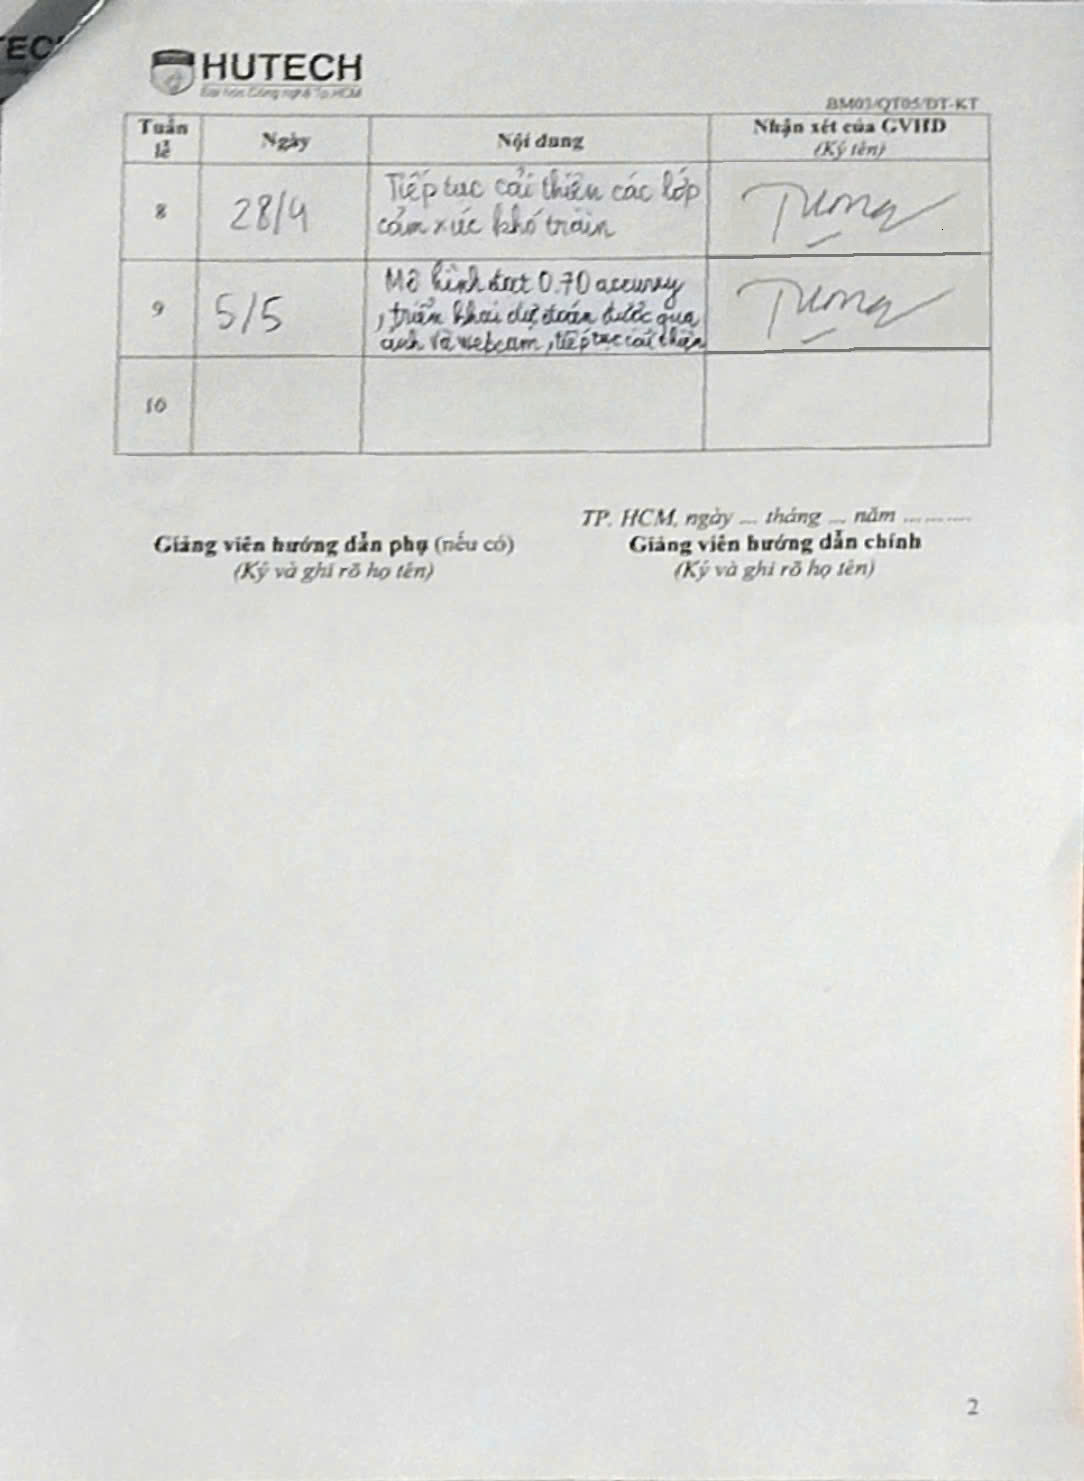 HUTECH
Đại học Công nghệ Tp.HCM
BM03/QT05/ĐT-KT
Tuần lễ
Ngày
Nội dung
Nhận xét của GVHD
(Ký tên)
8
28/4
Tiếp tục cải thiện các lớp
cảm xúc khó train
9
5/5
Mô hình đạt 0.70 accuracy
, triển khai dự đoán được qua
ảnh và webcam, tiếp tục cải thiện
10
TP. HCM, ngày ... tháng ... năm ..........
Giảng viên hướng dẫn phụ (nếu có)
Giảng viên hướng dẫn chính
(Ký và ghi rõ họ tên)
(Ký và ghi rõ họ tên)
2